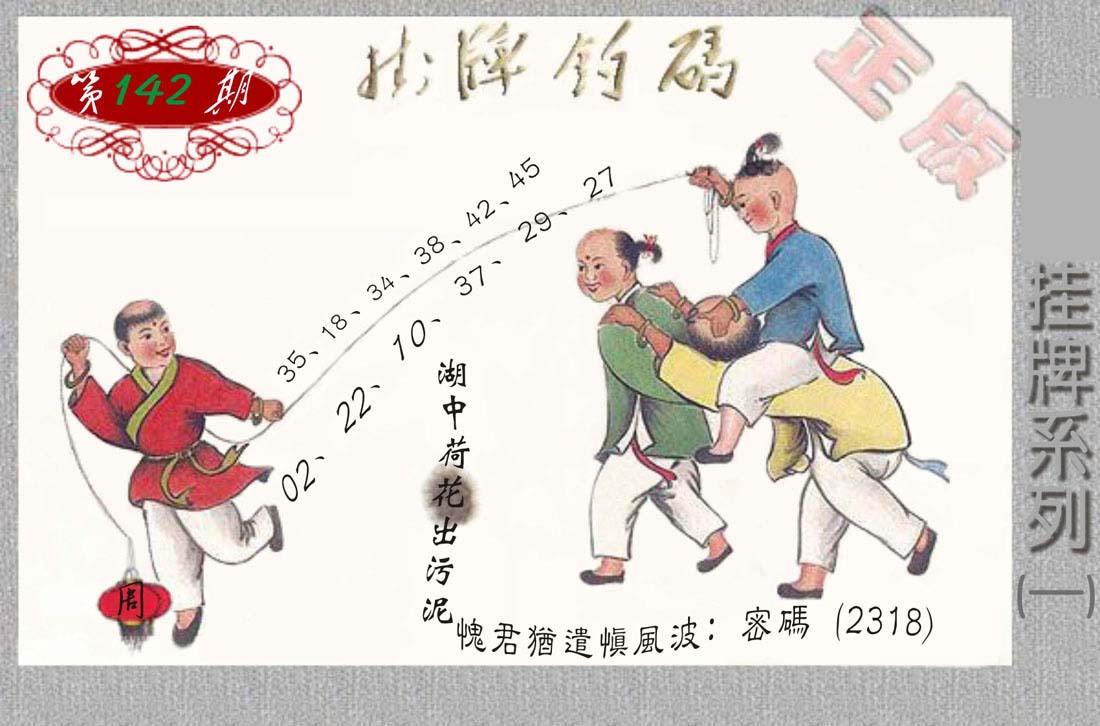 第142期
掛牌釣碼
正版
35、18、34、38、42、45
02、22、10、37、29、27
湖中荷花出污泥
愧君猶遣慎風波：密碼 (2318)
周
挂牌系列(一)